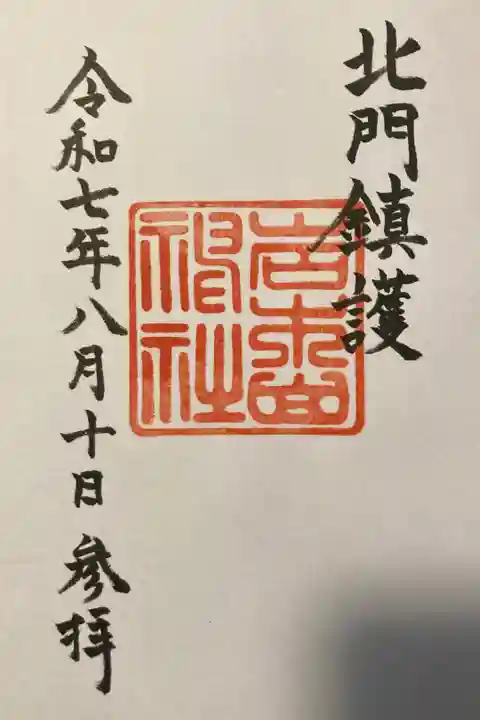 北門鎮護
岩木山
神社
令和七年八月十日参拝